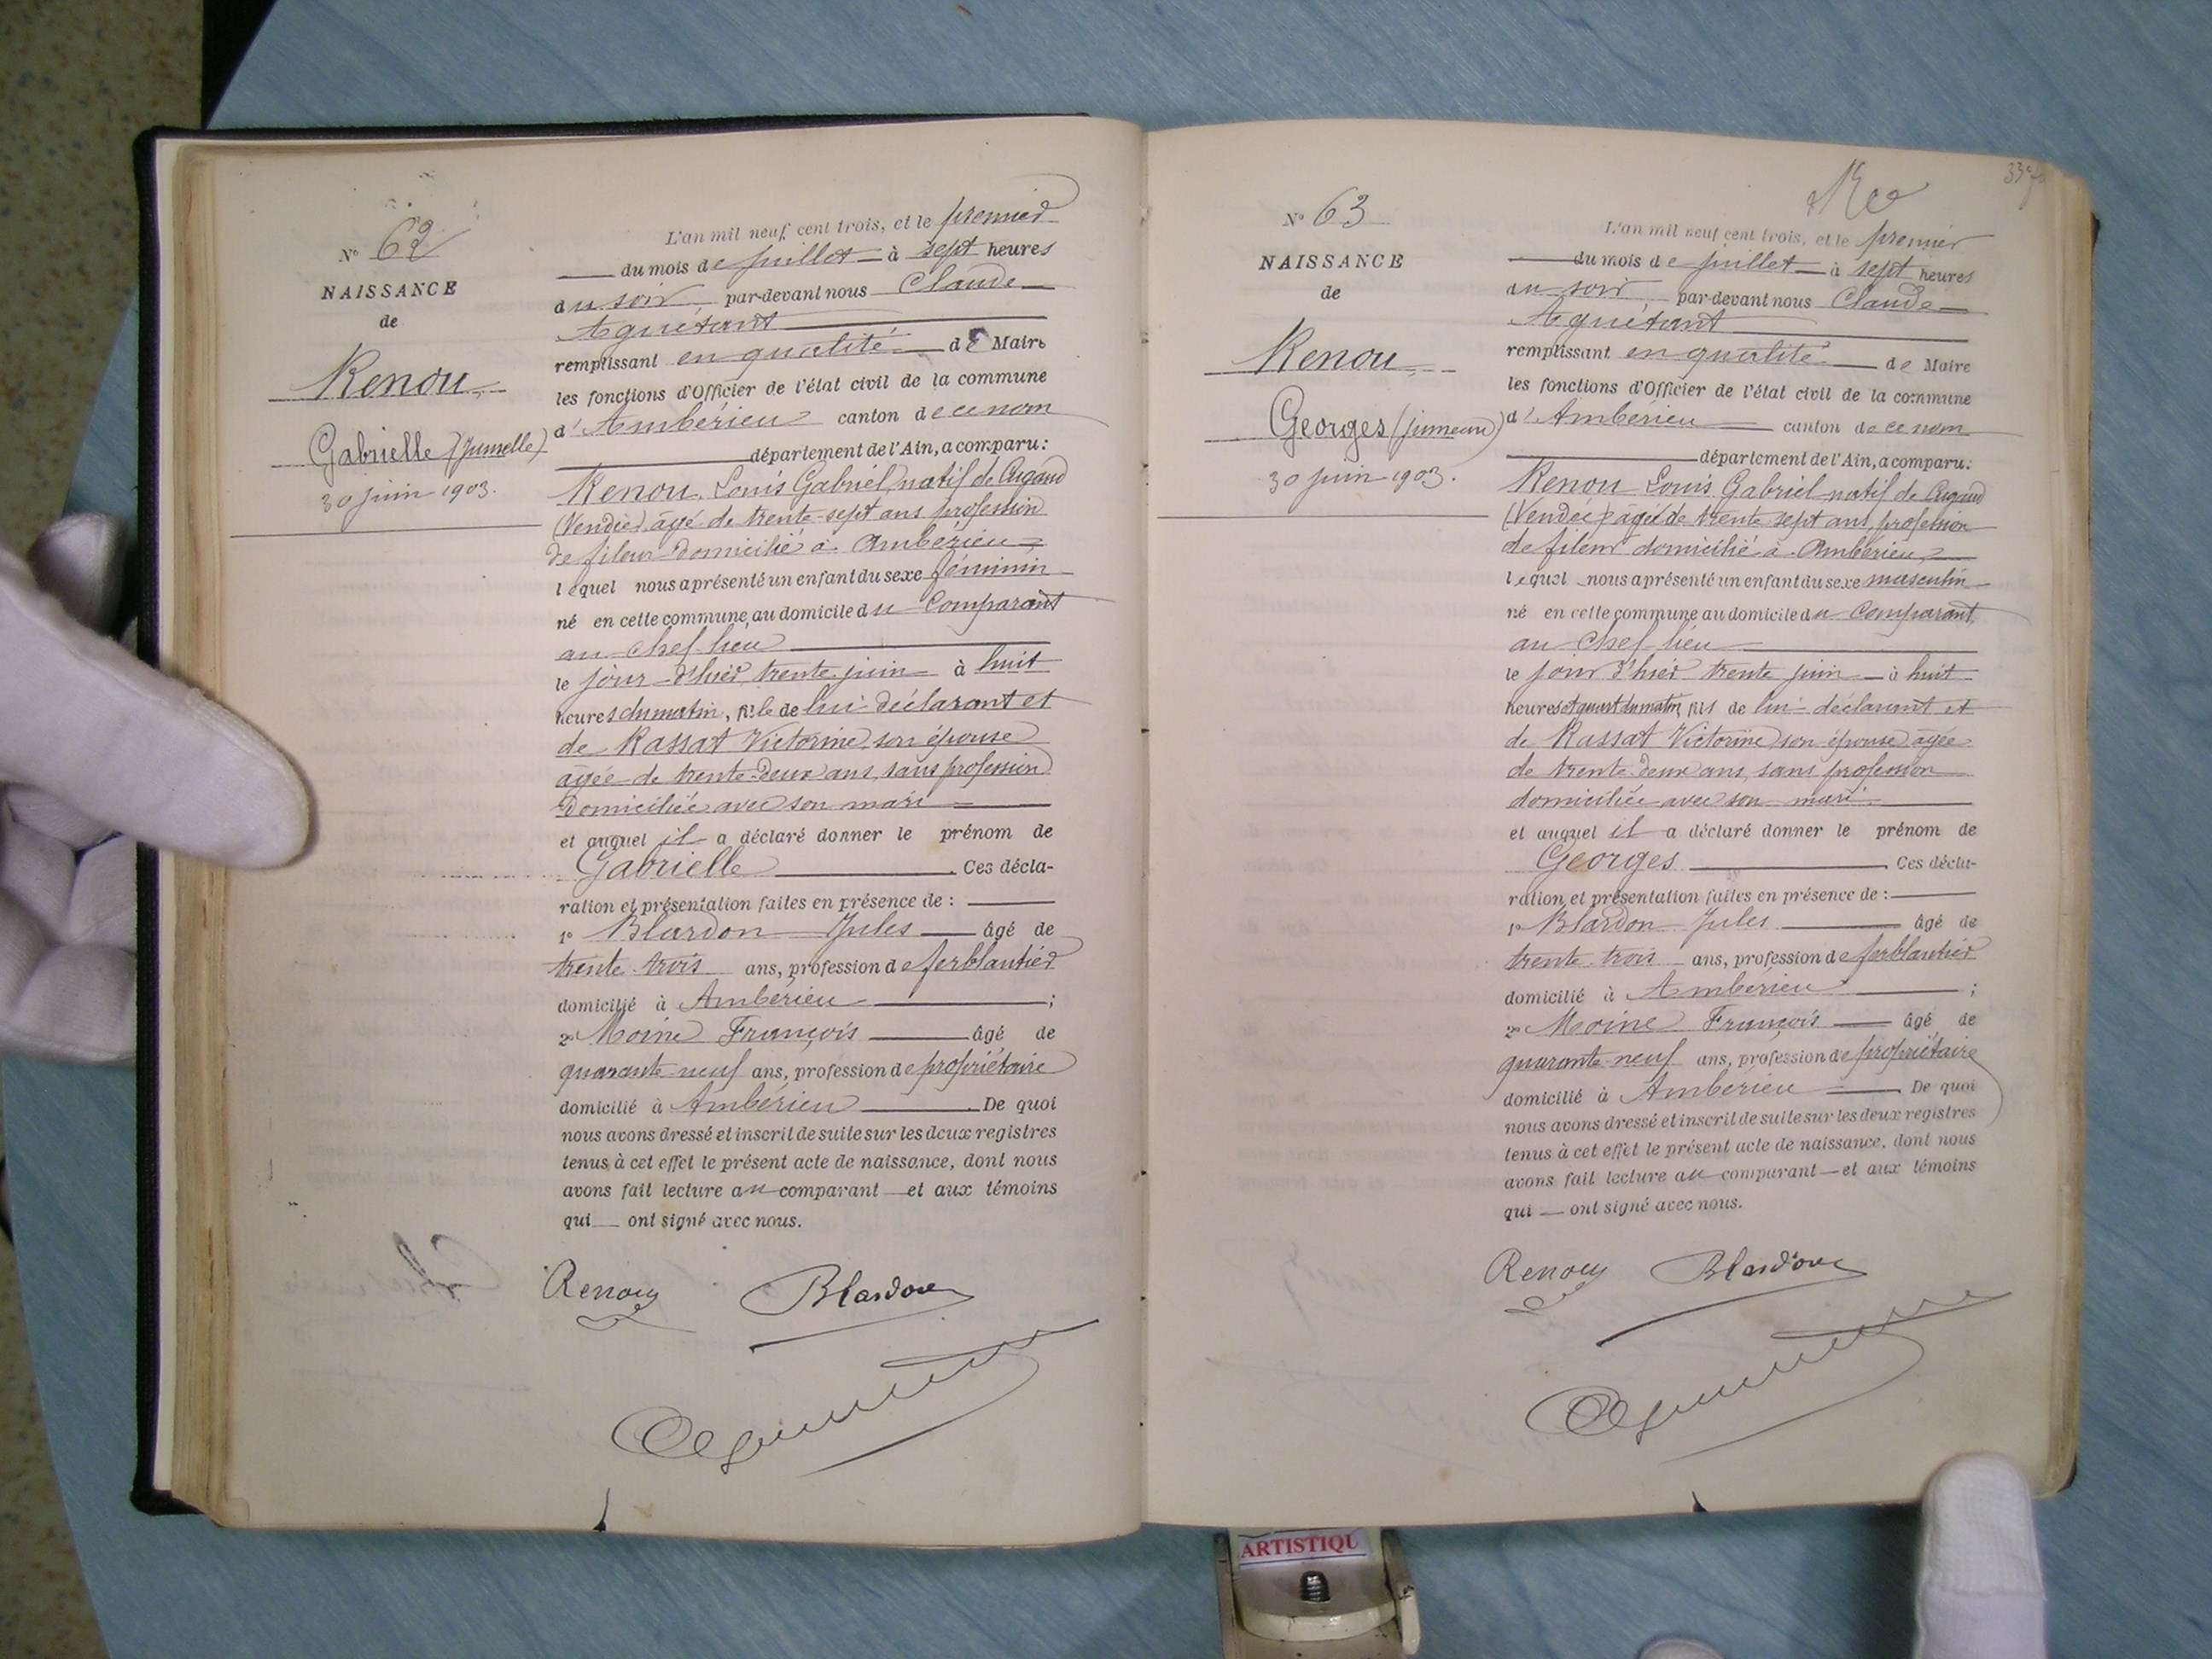 N° 62
NAISSANCE
de
Renou
Gabrielle (Jumelle)
30 juin 1903.
L'an mil neuf cent trois, et le premier
du mois de juillet à sept heures
du soir par-devant nous Claude
Aguétant
remplissant en qualité de Maire
les fonctions d'Officier de l'état civil de la commune
d'Ambérieu canton de ce nom
département de l'Ain, a comparu :
Renou Louis Gabriel natif de Cugand
(Vendée) âgé de trente-sept ans profession
de fileur domicilié à Ambérieu
lequel nous a présenté un enfant du sexe féminin
né en cette commune, au domicile du Comparant
au chef-lieu
le jour d'hier trente juin à huit
heures du matin, fille de lui déclarant et
de Rassat Victorine son épouse
âgée de trente-deux ans, sans profession
domiciliée avec son mari
et auquel il a déclaré donner le prénom de
Gabrielle. Ces décla-
ration et présentation faites en présence de :
1° Blardon Jules âgé de
trente trois ans, profession de ferblantier
domicilié à Ambérieu ;
2° Moine François âgé de
quarante-neuf ans, profession de propriétaire
domicilié à Ambérieu. De quoi
nous avons dressé et inscrit de suite sur les deux registres
tenus à cet effet le présent acte de naissance, dont nous
avons fait lecture au comparant et aux témoins
qui ont signé avec nous.
Renou Blardon
N° 63
NAISSANCE
de
Renou
Georges (jumeau)
30 juin 1903.
L'an mil neuf cent trois, et le premier
du mois de juillet à sept heures
du soir par-devant nous Claude
Aguétant
remplissant en qualité de Maire
les fonctions d'Officier de l'état civil de la commune
d'Ambérieu canton de ce nom
département de l'Ain, a comparu :
Renou Louis Gabriel natif de Cugand
(Vendée) âgé de trente sept ans, profession
de fileur domicilié à Ambérieu
lequel nous a présenté un enfant du sexe masculin
né en cette commune au domicile du Comparant
au Chef-lieu
le jour d'hier trente juin à huit
heures et quart du matin, fils de lui déclarant et
de Rassat Victorine son épouse âgée
de trente-deux ans, sans profession
domiciliée avec son mari
et auquel il a déclaré donner le prénom de
Georges. Ces décla-
ration et présentation faites en présence de :
1° Blardon Jules âgé de
trente trois ans, profession de ferblantier
domicilié à Ambérieu ;
2° Moine François âgé de
quarante-neuf ans, profession de propriétaire
domicilié à Ambérieu De quoi
nous avons dressé et inscrit de suite sur les deux registres
tenus à cet effet le présent acte de naissance, dont nous
avons fait lecture au comparant et aux témoins
qui ont signé avec nous.
Renou Blardon
ARTISTIQU